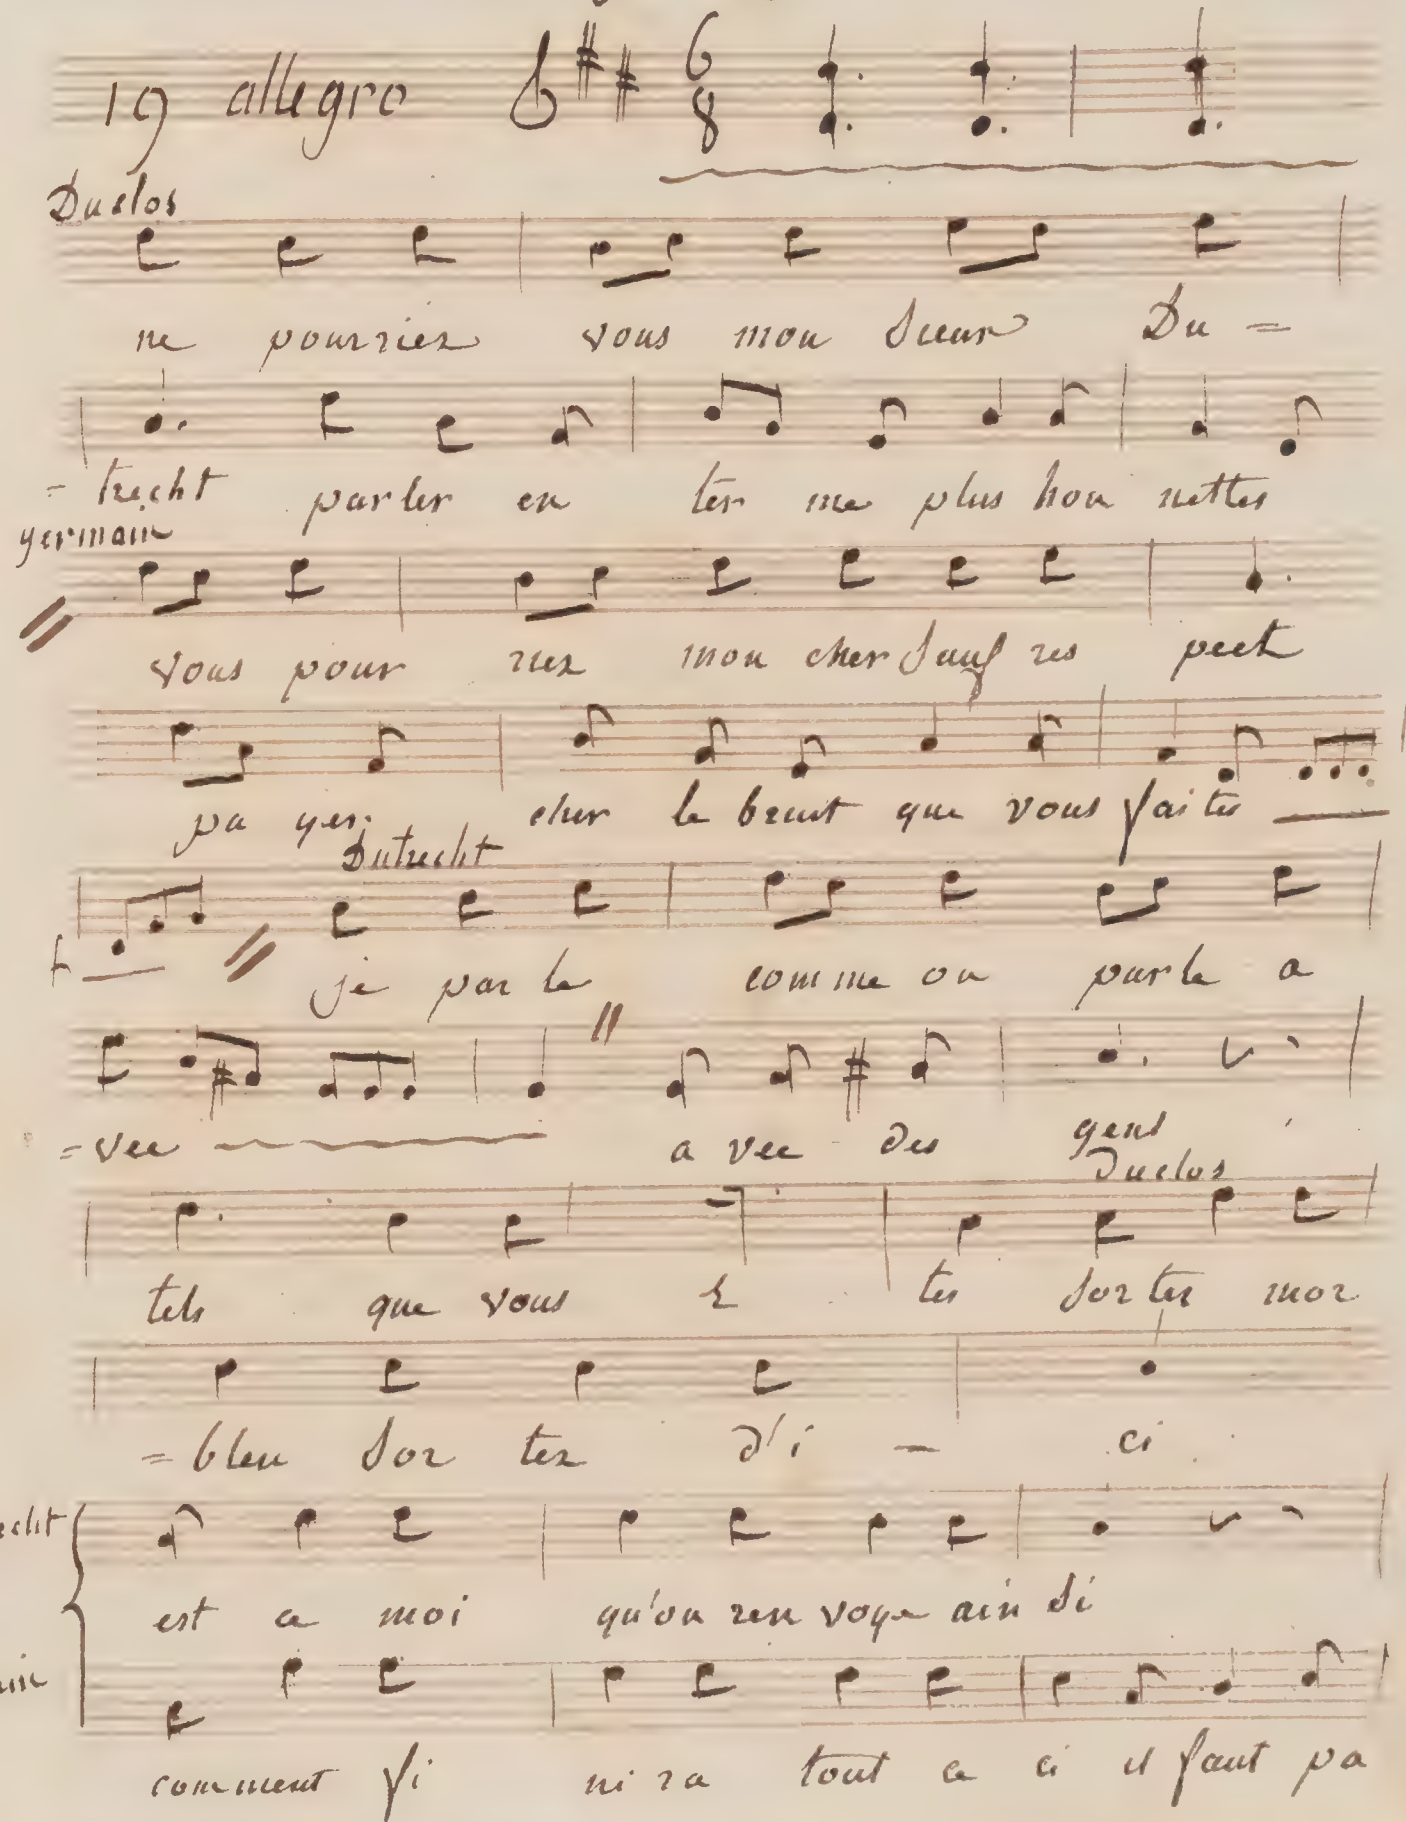 19 allegro 6 8
Duclos
ne pourriez vous mon Sieur Du =
= trecht parler en ter me plus hon nettes
germain
vous pour riez mon cher Sauf res pect
pa yer cher le bruit que vous faites
Dutrecht
je par le comme on parle a
= vec a vec des gens
tels que vous ê tes Sor tez mor
Duclos
= bleu Sor tez d'i - ci
echt
est ce moi qu'on ren voye ain Si
ain
comment fi ni ra tout ce ci il faut pa